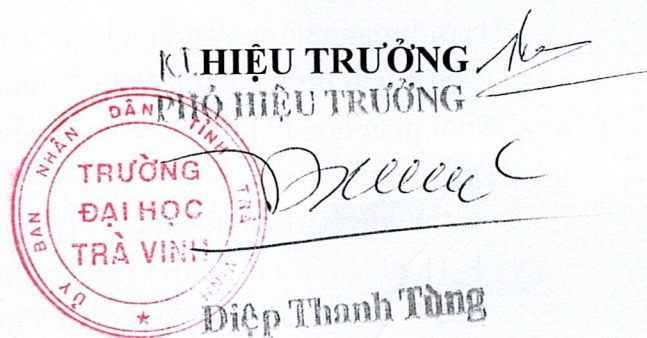 KT.HIỆU TRƯỞNG
PHÓ HIỆU TRƯỞNG
ỦY BAN NHÂN DÂN TỈNH TRÀ VINH
TRƯỜNG
ĐẠI HỌC
TRÀ VINH
★
Diệp Thanh Tùng